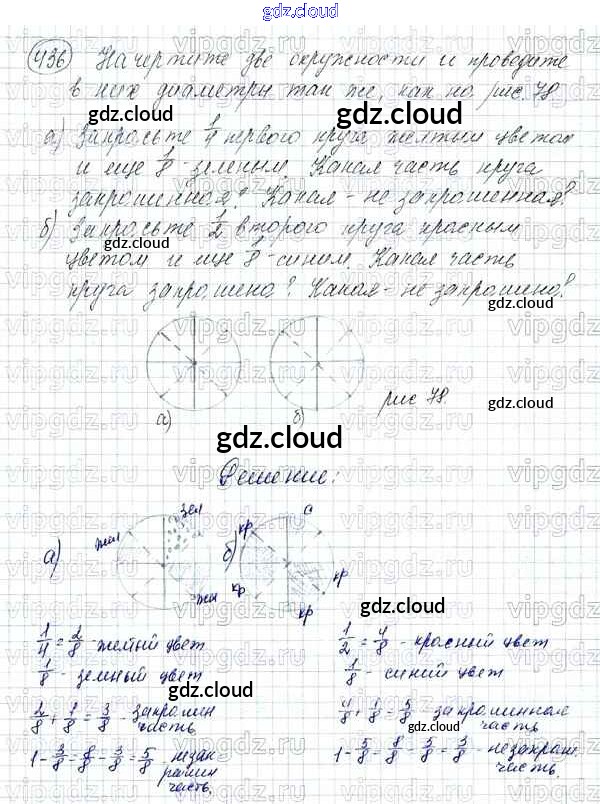 gdz.cloud
436 Начертите две окружности и проведите
в них диаметры так же, как на рис. 78.
а) Закрасьте 1/4 первого круга желтым цветом
и еще 1/8 - зеленым. Какая часть круга
закрашенная? Какая - не закрашенная?
б) Закрасьте 1/2 второго круга красным
цветом и еще 1/8 - синим. Какая часть
круга закрашена? Какая - не закрашена?
а) б) рис 78.
Решение:
а) жел зел жел
б) кр с кр кр кр
1/4 = 2/8 - желтый цвет
1/8 - зеленый цвет
2/8 + 1/8 = 3/8 - закрашен
часть
1 - 3/8 = 8/8 - 3/8 = 5/8 - незак
рашен
часть.
1/2 = 4/8 - красный цвет
1/8 - синий цвет
4/8 + 1/8 = 5/8 закрашенная
часть
1 - 5/8 = 8/8 - 5/8 = 3/8 - незакраш.
часть.
gdz.cloud
gdz.cloud
gdz.cloud
gdz.cloud
gdz.cloud
gdz.cloud
gdz.cloud
gdz.cloud
gdz.cloud
gdz.cloud
gdz.cloud
gdz.cloud
gdz.cloud